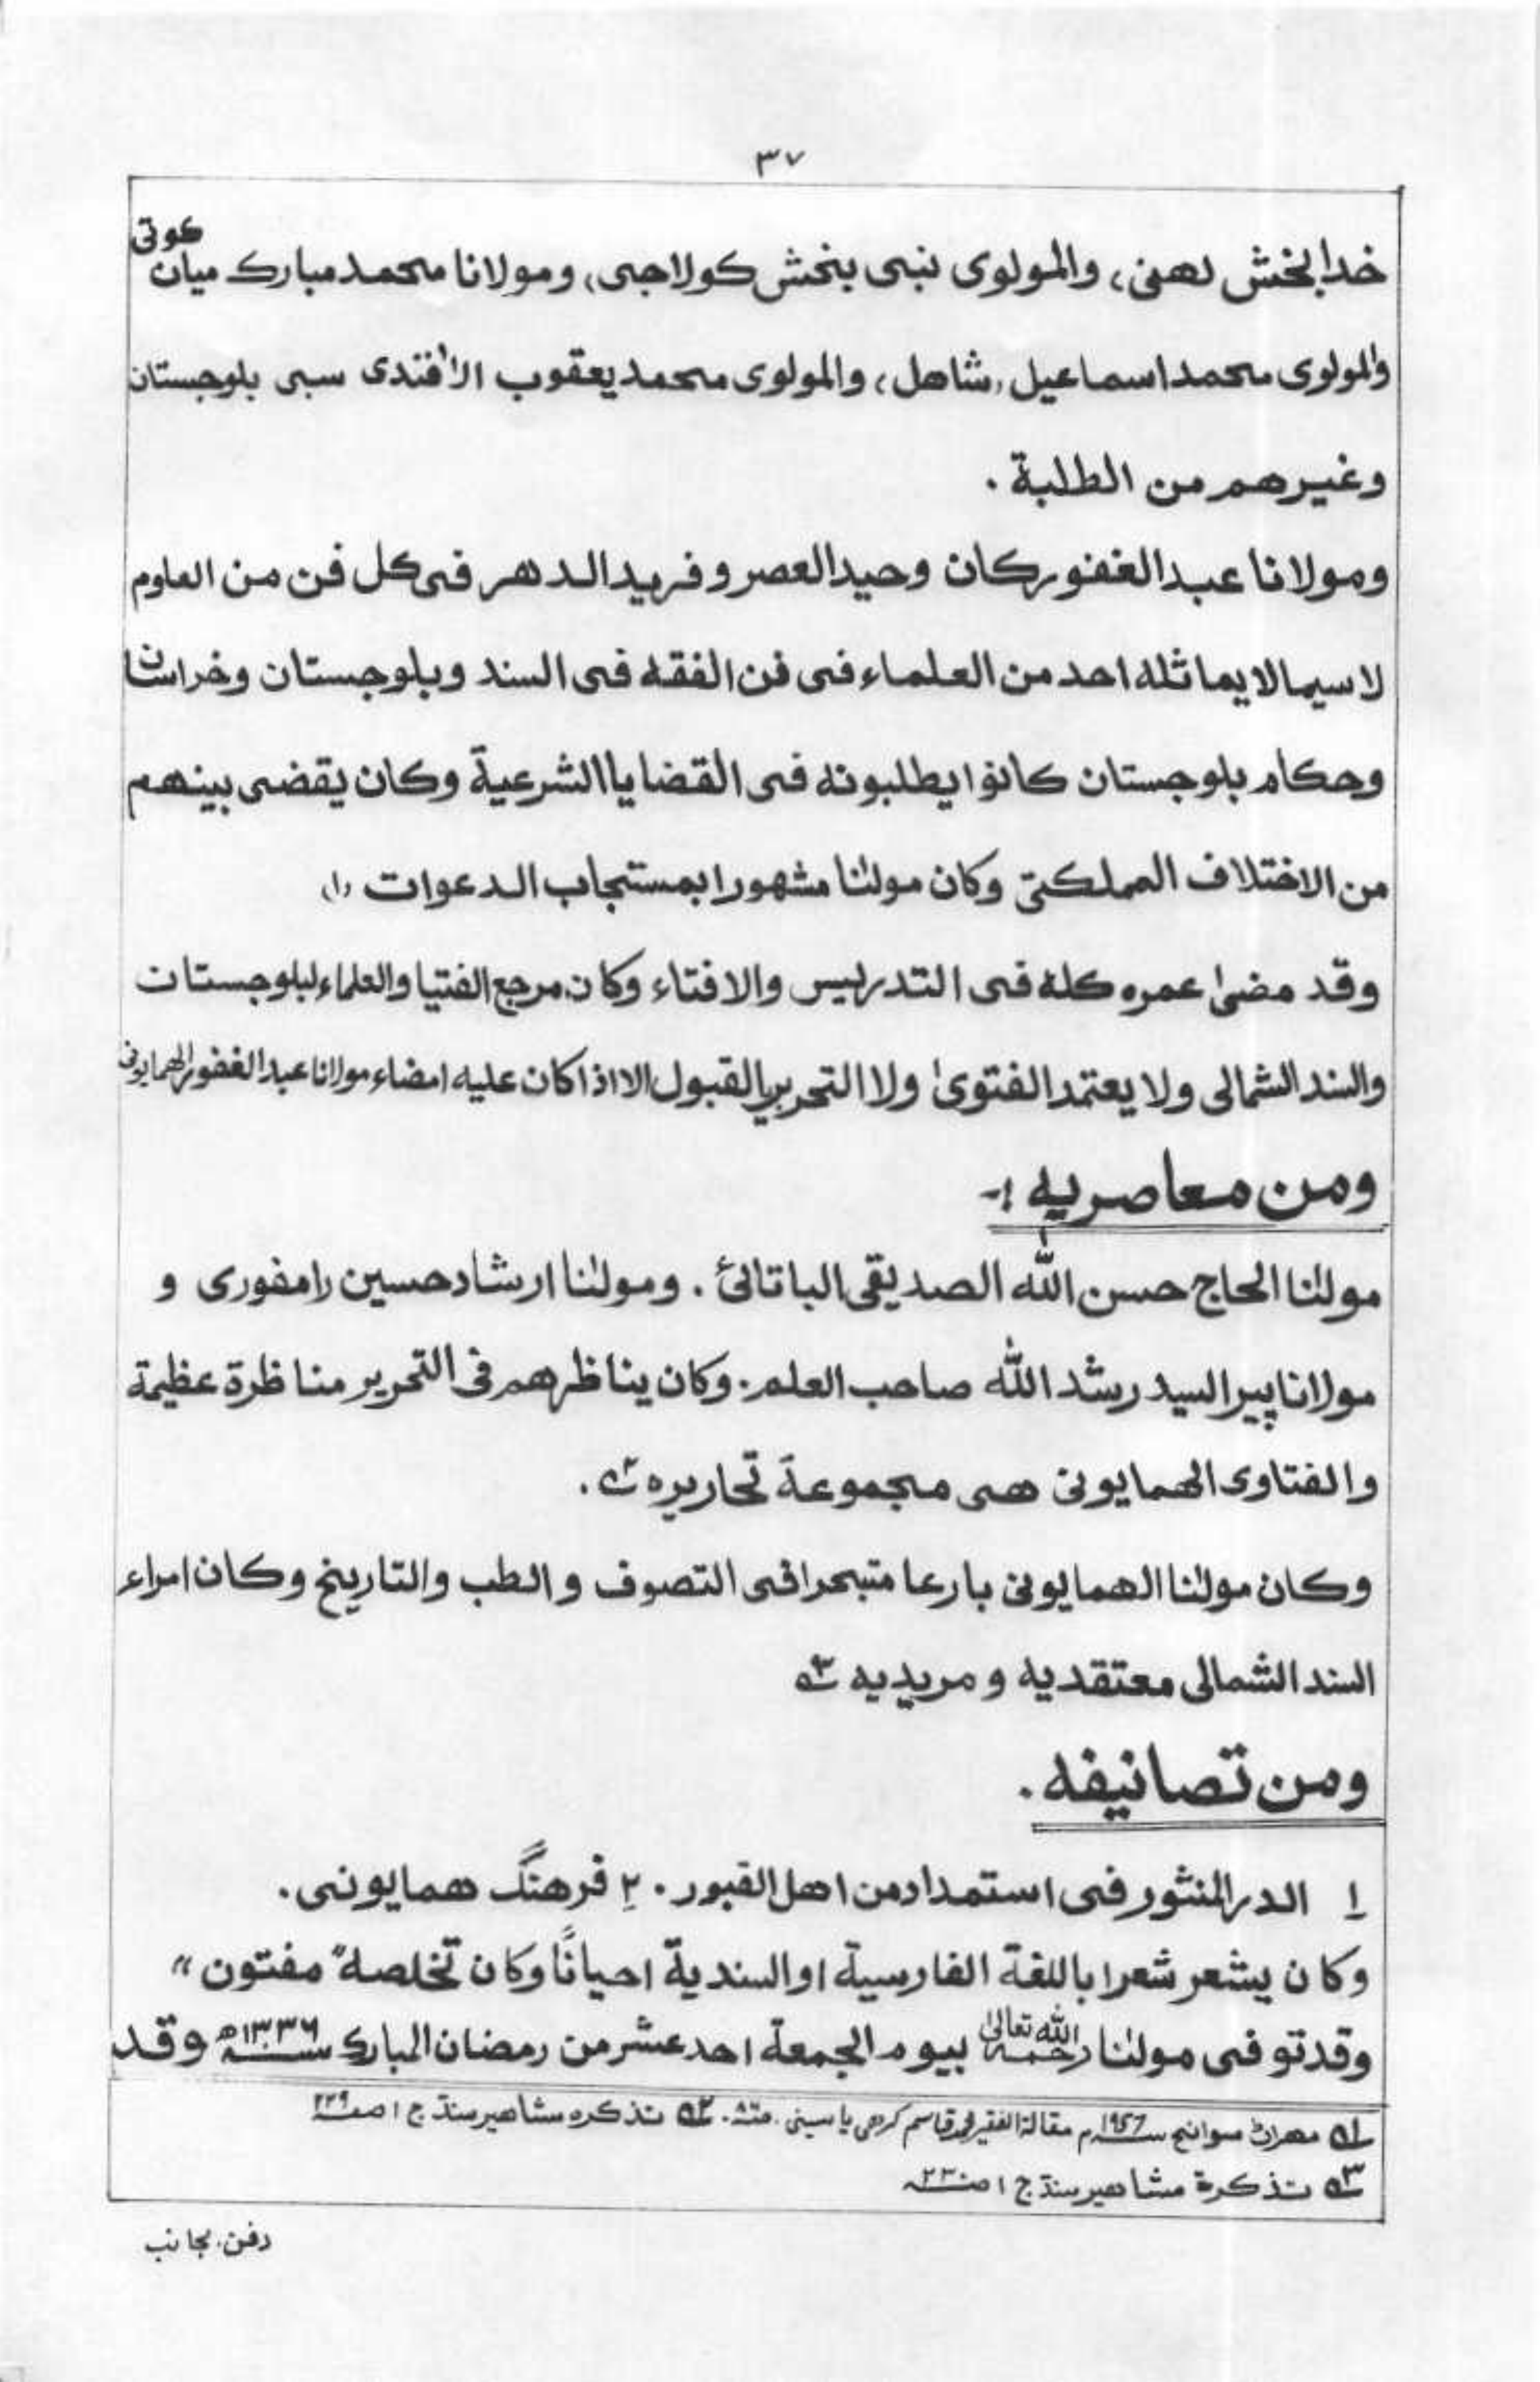 ٣٧
خدابخش لهنى، والمولوى نبى بخش كولاجى، ومولانا محمد مبارك ميان كوتى
والمولوى محمد اسماعيل، شاهل، والمولوى محمد يعقوب الأفندى سبى بلوجستان
وغيرهم من الطلبة .
ومولانا عبد الغفور كان وحيد العصر و فريد الدهر فى كل فن من العلوم
لا سيما لا يماثله احد من العلماء فى فن الفقه فى السند وبلوجستان وخراسان
وحكام بلوجستان كانوا يطلبونه فى القضايا الشرعية وكان يقضى بينهم
من الاختلاف المملكتى وكان مولٰنا مشهورا بمستجاب الدعوات (١)
وقد مضىٰ عمره كله فى التدريس والافتاء وكان مرجع الفتيا والعلماء لبلوجستان
والسند الشمالى ولا يعتمد الفتوىٰ ولا التحرير بالقبول الا اذا كان عليه امضاء مولانا عبد الغفور الهمايونى
ومن معاصريه :-
مولٰنا الحاج حسن الله الصديقى الباتائى . ومولٰنا ارشاد حسين رامفورى و
مولانا پير السيد رشد الله صاحب العلم . وكان يناظرهم فى التحرير مناظرة عظيمة
والفتاوى الهمايونى هى مجموعة تحاريره ٢ .
وكان مولٰنا الهمايونى بارعا متبحرا فى التصوف و الطب والتاريخ وكان امراء
السند الشمالى معتقديه و مريديه ٣
ومن تصانيفه .
١ الدر المنثور فى استمداد من اهل القبور . ٢ فرهنگ همايونى .
وكان يشعر شعرا باللغة الفارسية او السندية احيانًا وكان تخلصه " مفتون "
وقد توفى مولٰنا رحمه الله تعالىٰ بيوم الجمعة احد عشر من رمضان المبارك سنه ١٣٣٦ﻫ وقد
١ مهران سوانح سنه ١٩٥٦م مقالة الفقير محمد قاسم كرهى ياسينى . ٢ تذكره مشاهير سنڌ ج ١ صـ ٢٢٩
٣ تذكرة مشاهير سنڌ ج ١ صـ ٢٣٠
دفن بجانب